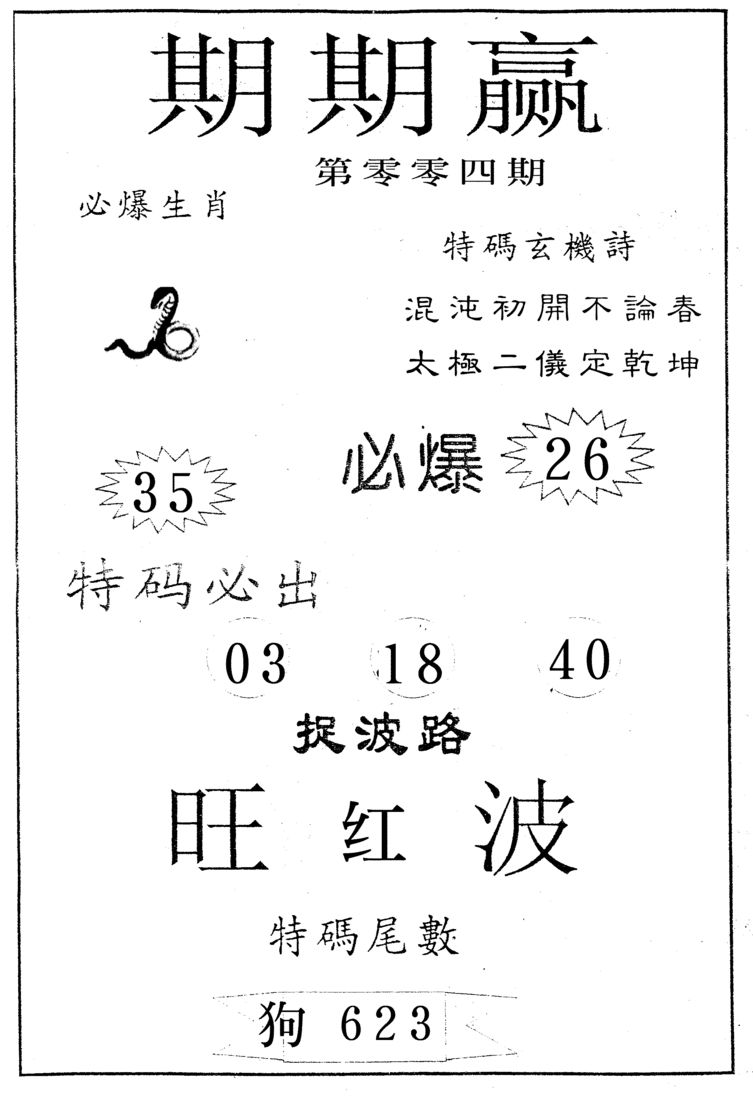 期期赢
第零零四期
必爆生肖
特碼玄機詩
混沌初開不論春
太極二儀定乾坤
35
必爆 26
特码必出
03 18 40
捉波路
旺红波
特碼尾數
狗 623